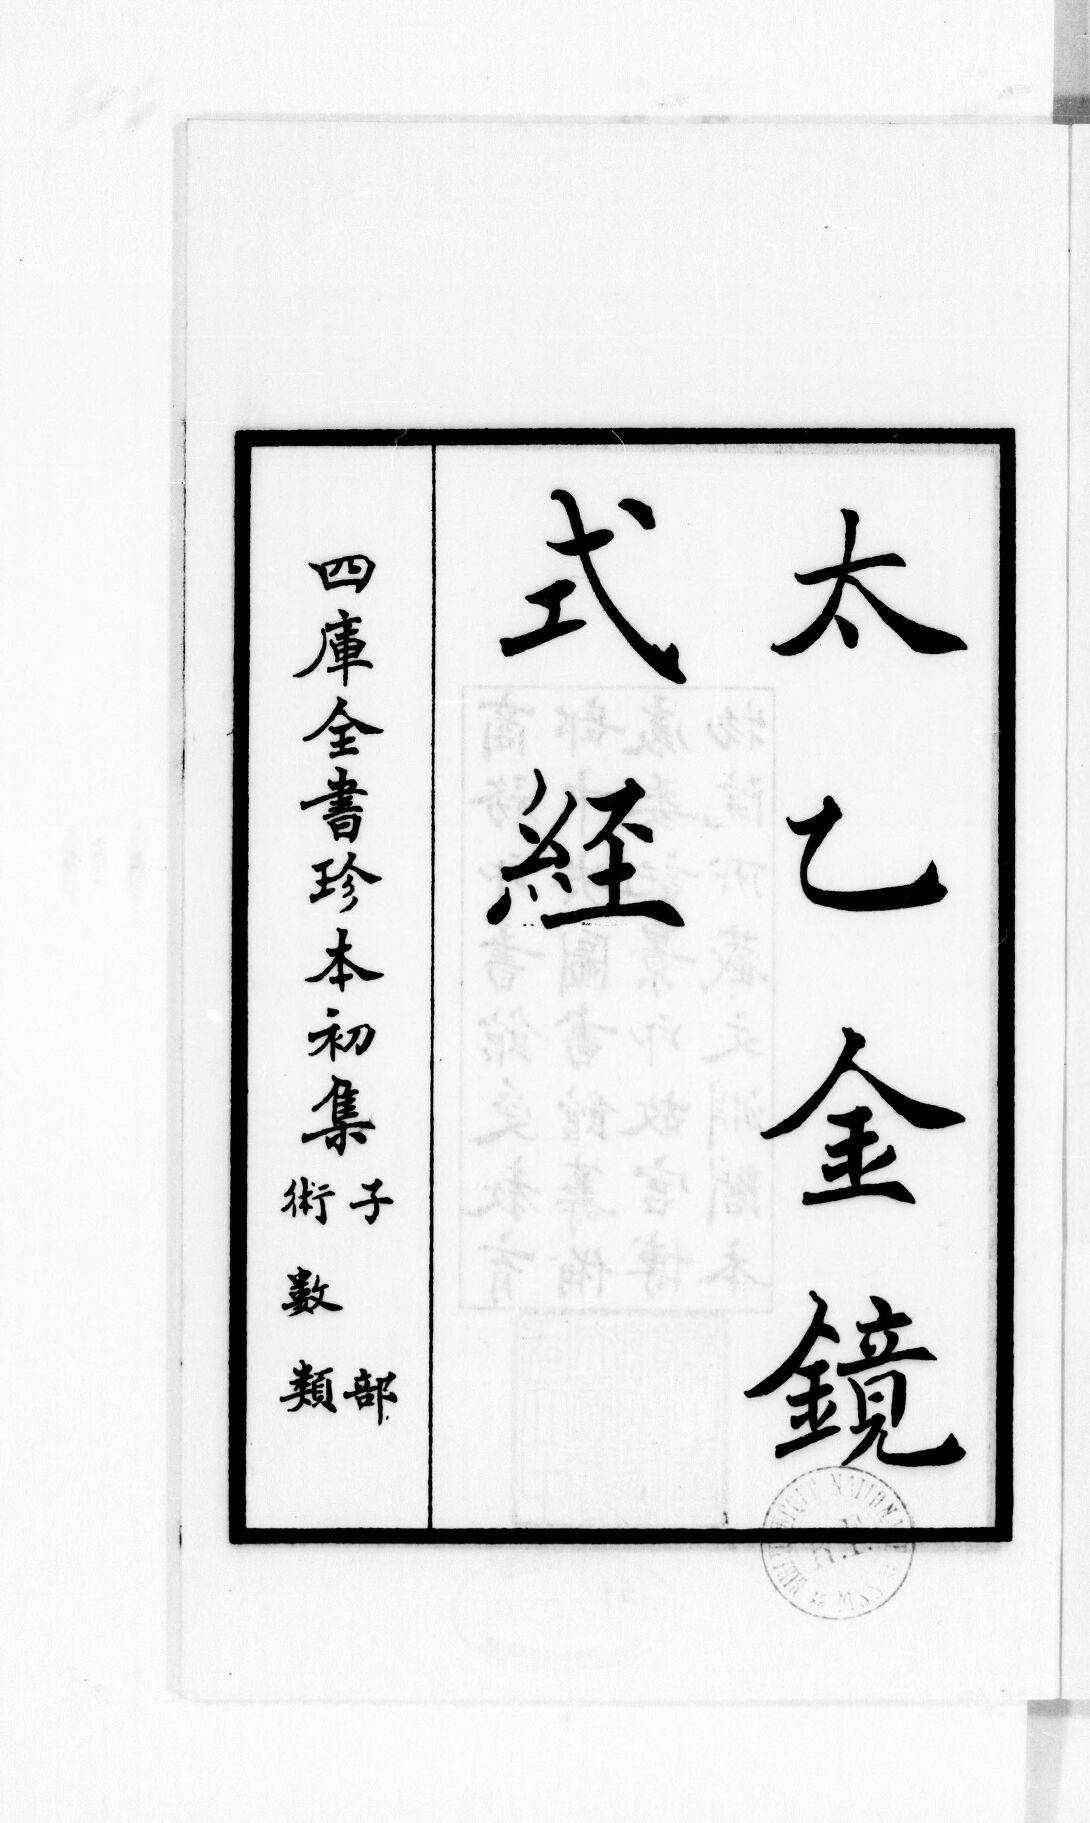 太乙金鏡
式經
四庫全書珍本初集
子部
術數類
BIBLIOTHEQUE NATIONALE MSS
R.F.
商務印書館受教育
部中央圖書館籌備
處委託景印故宮博
物院所藏文淵閣本